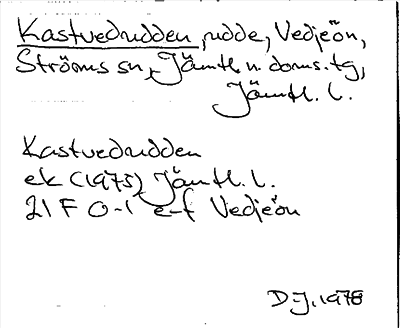 Kastvedudden, udde, Vedjeön,
Ströms sn, Jämtl n. doms. tg,
Jämtl. l.
Kastvedudden
ek (1975) Jämtl. l.
21 F 0-1 e-f Vedjeön
D-J. 1978